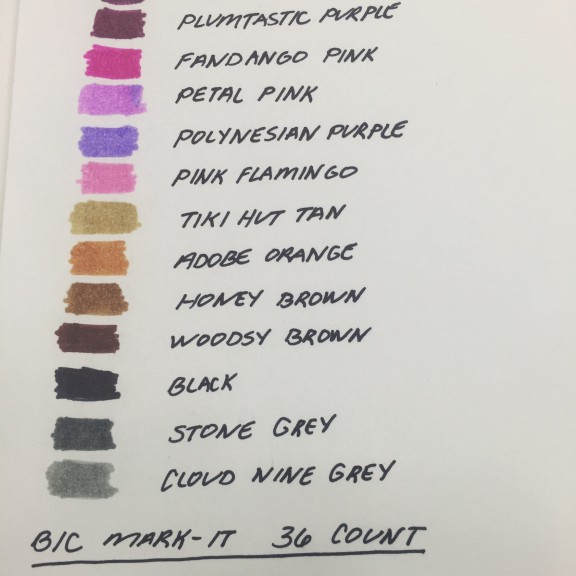 PLUMTASTIC PURPLE
FANDANGO PINK
PETAL PINK
POLYNESIAN PURPLE
PINK FLAMINGO
TIKI HUT TAN
ADOBE ORANGE
HONEY BROWN
WOODSY BROWN
BLACK
STONE GREY
CLOUD NINE GREY
BIC MARK-IT 36 COUNT